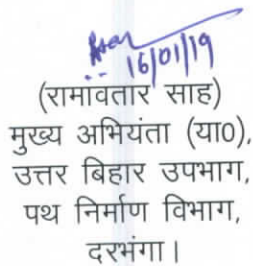 16/01/19
(रामावतार साह)
मुख्य अभियंता (या०),
उत्तर बिहार उपभाग,
पथ निर्माण विभाग,
दरभंगा।